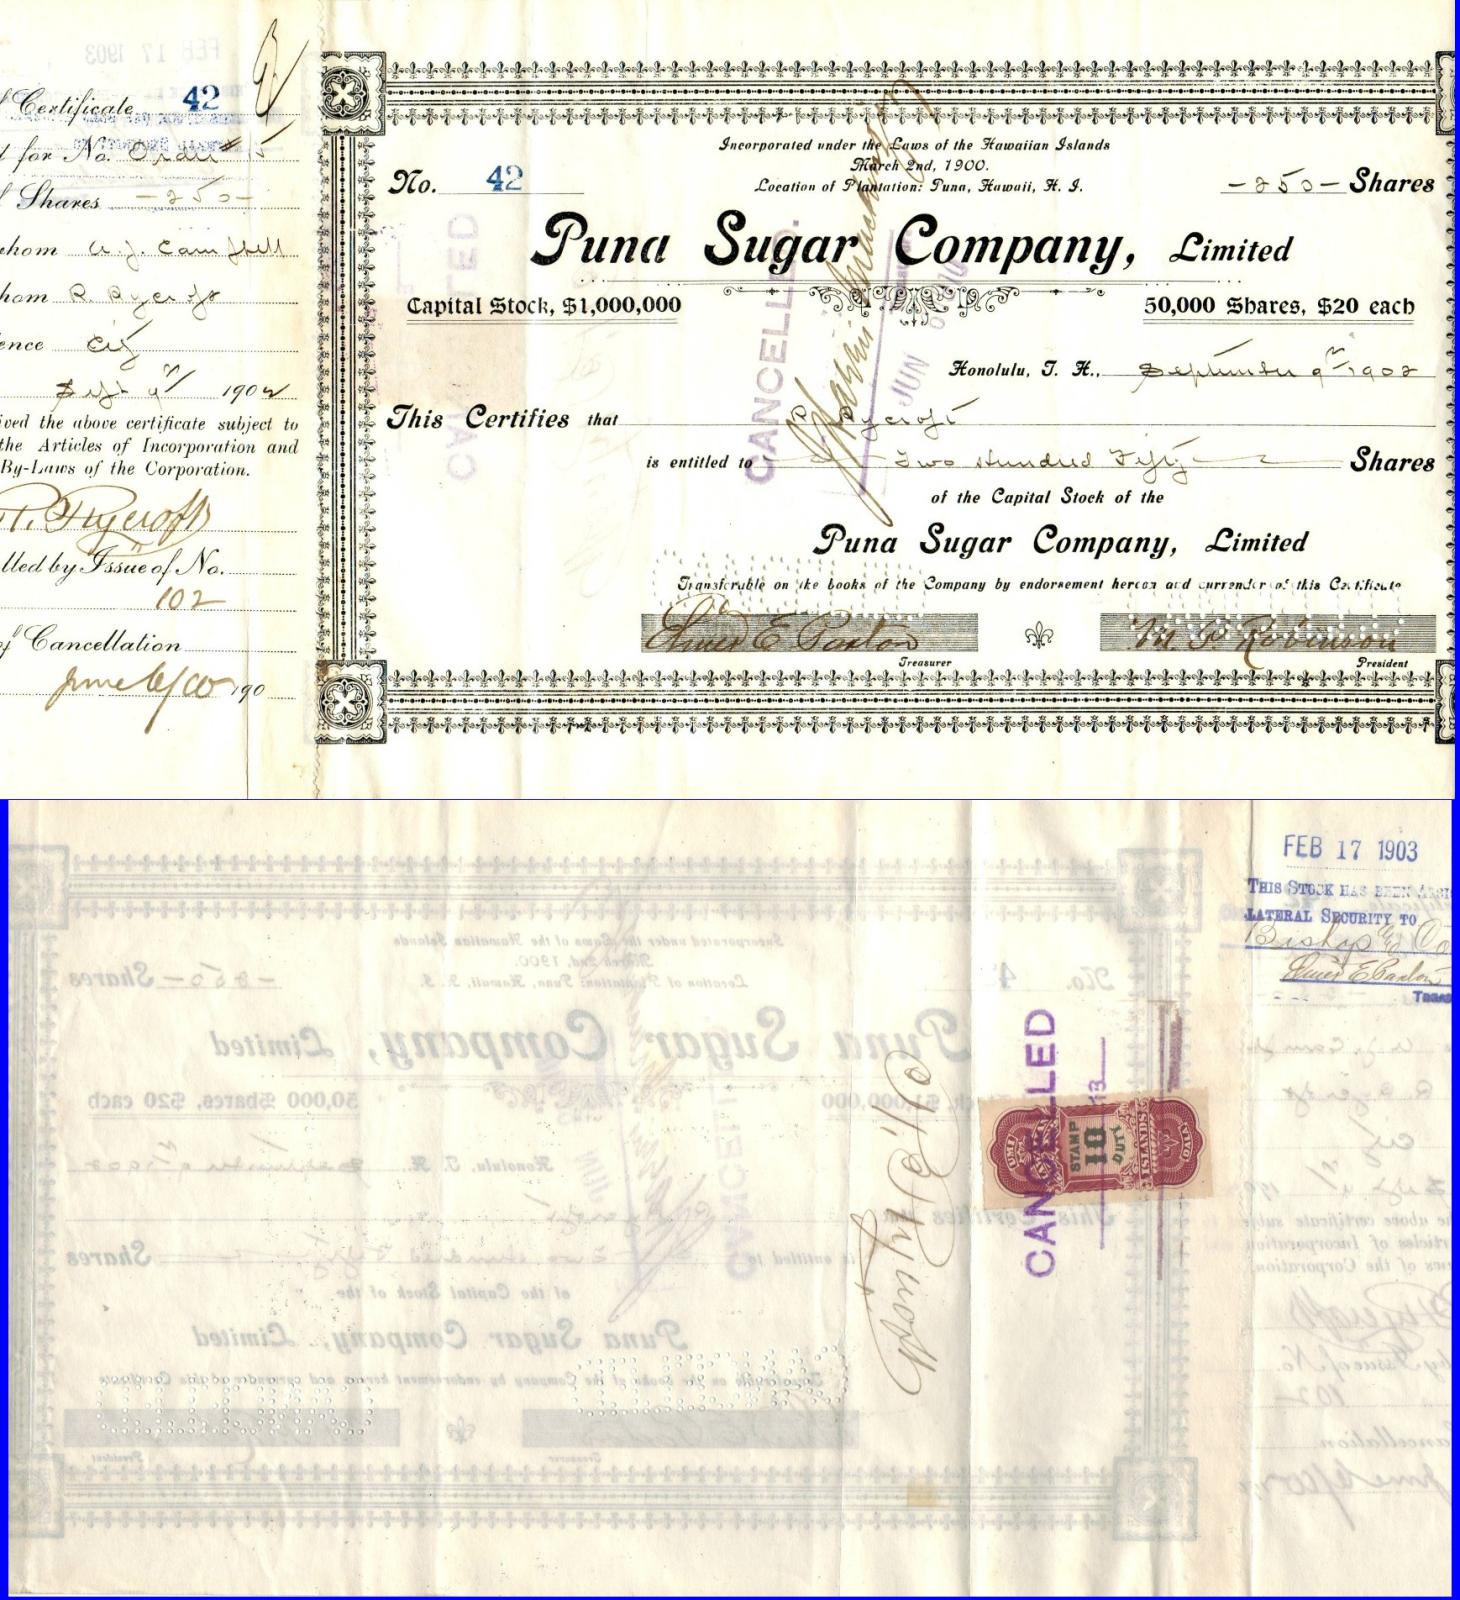 Certificate 42
for No. Order # 15
Shares -250-
whom A. J. Campbell
whom R. Rycroft
ence City
Sept 9th 1902
ived the above certificate subject to
the Articles of Incorporation and
By-Laws of the Corporation.
R. Rycroft
lled by Issue of No.
102
of Cancellation
June 6/10 190
Incorporated under the Laws of the Hawaiian Islands
March 2nd, 1900.
Location of Plantation: Puna, Hawaii, H. I.
No. 42
-250- Shares
Puna Sugar Company, Limited
Capital Stock, $1,000,000
50,000 Shares, $20 each
Honolulu, T. H., September 9th 1902
This Certifies that R. Rycroft
is entitled to Two Hundred Fifty Shares
of the Capital Stock of the
Puna Sugar Company, Limited
Transferable on the books of the Company by endorsement hereon and surrender of this Certificate
Elmer E Paxton
Treasurer
M. P. Robinson
President
CANCELLED.
JUN
CANCELLED
FEB 17 1903
THIS STOCK HAS BEEN ASSI
LATERAL SECURITY TO
Bishop & Co
Elmer E Paxton
TREAS
CANCELLED
13
STAMP
10
DUTY
ISLANDS
UMI
DALA